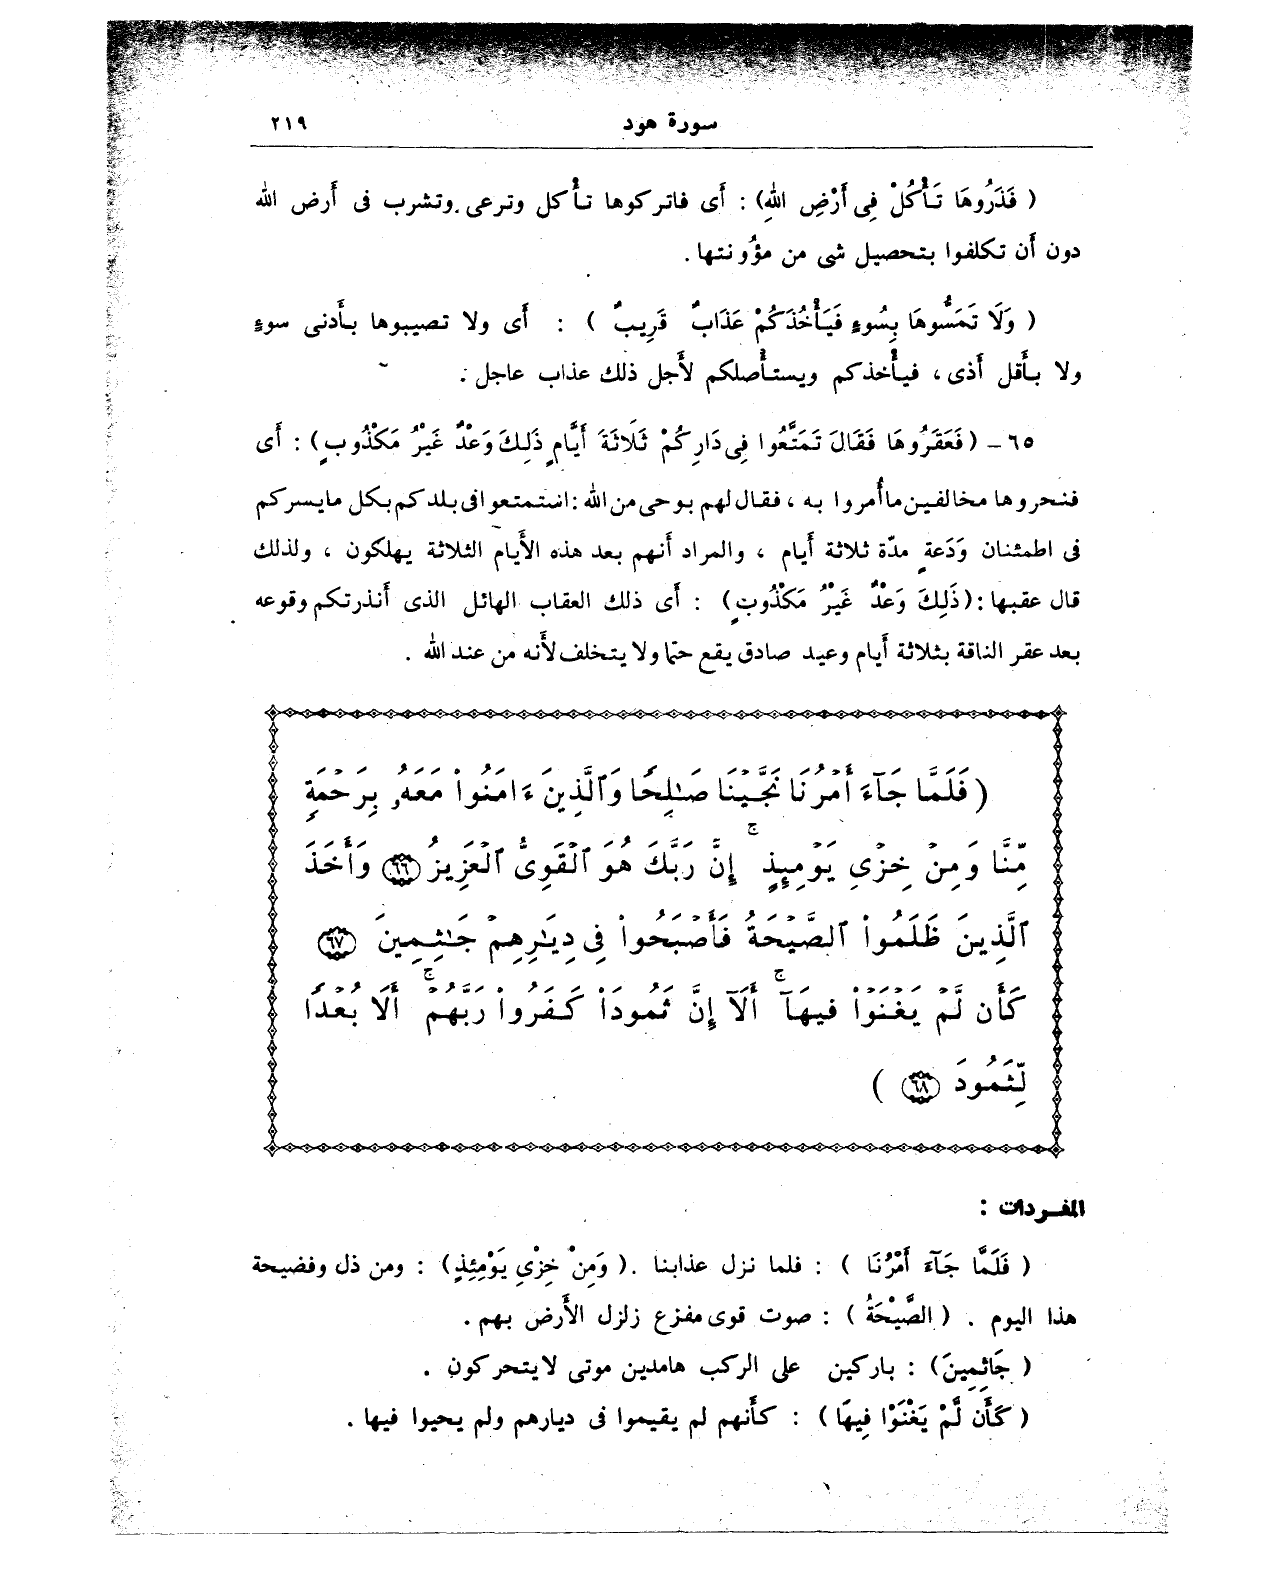 سورة هود ٢١٩
( فَذَرُوهَا تَأْكُلْ فِى أَرْضِ اللهِ) : أَى فاتركوها تأْكل وترعى وتشرب فى أَرض الله
دون أَن تكلفوا بتحصيل شى من مؤُونتها .
( وَلَا تَمَسُّوهَا بِسُوءٍ فَيَأْخُذَكُمْ عَذَابٌ قَرِيبٌ ) : أَى ولا تصيبوها بأَدنى سوءٍ
ولا بأَقل أَذى ، فيأْخذكم ويستأْصلكم لأَجل ذلك عذاب عاجل .
٦٥ - ( فَعَقَرُوهَا فَقَالَ تَمَتَّعُوا فِى دَارِكُمْ ثَلَاثَةَ أَيَّامٍ ذَلِكَ وَعْدٌ غَيْرُ مَكْذُوبٍ) : أَى
فنحروها مخالفين ما أُمروا به ، فقال لهم بوحى من الله : استمتعوا فى بلدكم بكل مايسركم
فى اطمئنان وَدَعةٍ مدّة ثلاثة أَيام ، والمراد أَنهم بعد هذه الأَيام الثلاثة يهلكون ، ولذلك
قال عقبها : (ذَلِكَ وَعْدٌ غَيْرُ مَكْذُوبٍ) : أَى ذلك العقاب الهائل الذى أَنذرتكم وقوعه
بعد عقر الناقة بثلاثة أَيام وعيد صادق يقع حتما ولا يتخلف لأَنه من عند الله .
( فَلَمَّا جَآءَ أَمْرُنَا نَجَّيْنَا صَـٰلِحًا وَٱلَّذِينَ ءَامَنُوا۟ مَعَهُۥ بِرَحْمَةٍ
مِّنَّا وَمِنْ خِزْىِ يَوْمِئِذٍ ۚ إِنَّ رَبَّكَ هُوَ ٱلْقَوِىُّ ٱلْعَزِيزُ ٦٦ وَأَخَذَ
ٱلَّذِينَ ظَلَمُوا۟ ٱلصَّيْحَةُ فَأَصْبَحُوا۟ فِى دِيَـٰرِهِمْ جَـٰثِمِينَ ٦٧
كَأَن لَّمْ يَغْنَوْا۟ فِيهَآ ۚ أَلَآ إِنَّ ثَمُودَا۟ كَفَرُوا۟ رَبَّهُمْ ۚ أَلَا بُعْدًا
لِّثَمُودَ ٦٨ )
المفردات :
( فَلَمَّا جَآءَ أَمْرُنَا ) : فلما نزل عذابنا . ( وَمِنْ خِزْىِ يَوْمِئِذٍ) : ومن ذل وفضيحة
هذا اليوم . ( الصَّيْحَةُ ) : صوت قوى مفزع زلزل الأَرض بهم .
( جَاثِمِينَ) : باركين على الركب هامدين موتى لايتحركون .
( كَأَن لَّمْ يَغْنَوْا فِيهَا ) : كأَنهم لم يقيموا فى ديارهم ولم يحيوا فيها .